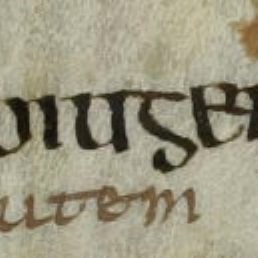 oniuge
utem